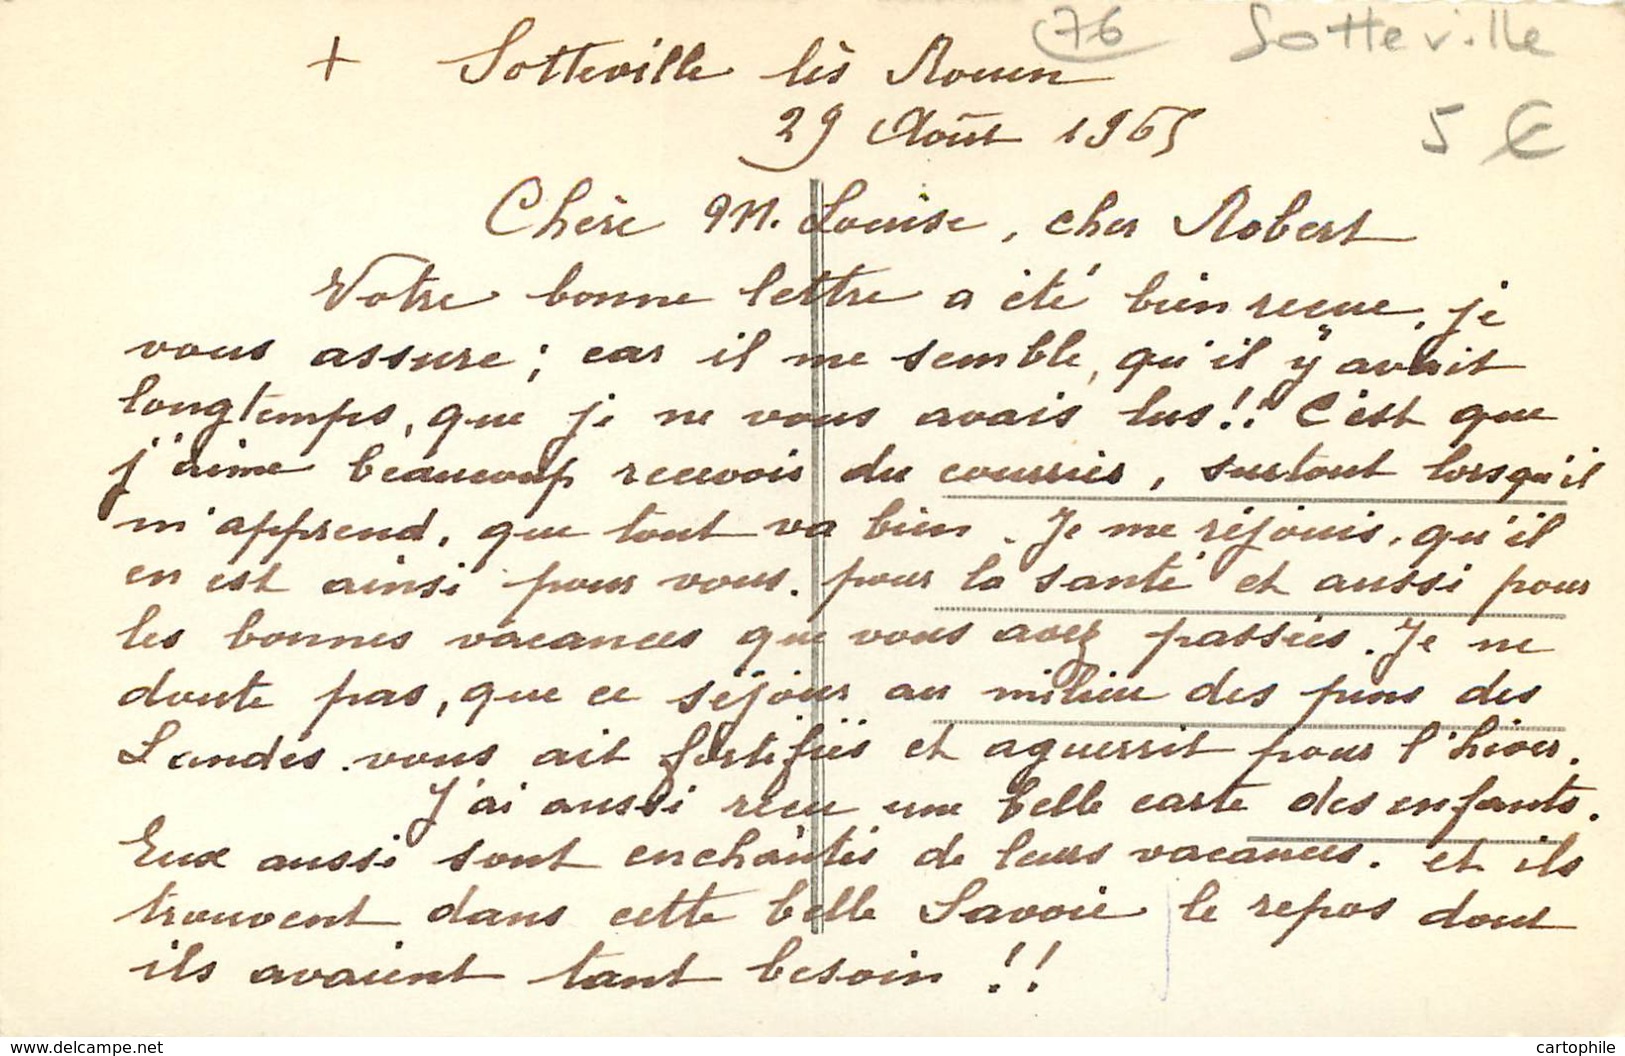 76 Sotteville
+ Sotteville lès Rouen
5 €
29 Août 1965
Chère M. Louise, cher Robert
Votre bonne lettre a été bien reçue, je
vous assure ; car il me semble, qu'il y avait
longtemps, que je ne vous avais lus !! C'est que
j'aime beaucoup recevoir du courrier, surtout lorsqu'il
m'apprend, que tout va bien. Je me réjouis, qu'il
en est ainsi pour vous. pour la santé et aussi pour
les bonnes vacances que vous avez passées. Je ne
doute pas, que ce séjour au milieu des pins des
Landes vous ait fortifiés et aguerrit pour l'hiver.
J'ai aussi reçu une belle carte des enfants.
Eux aussi sont enchantés de leurs vacances. et ils
trouvent dans cette belle Savoie le repos dont
ils avaient tant besoin !!
www.delcampe.net
cartophile